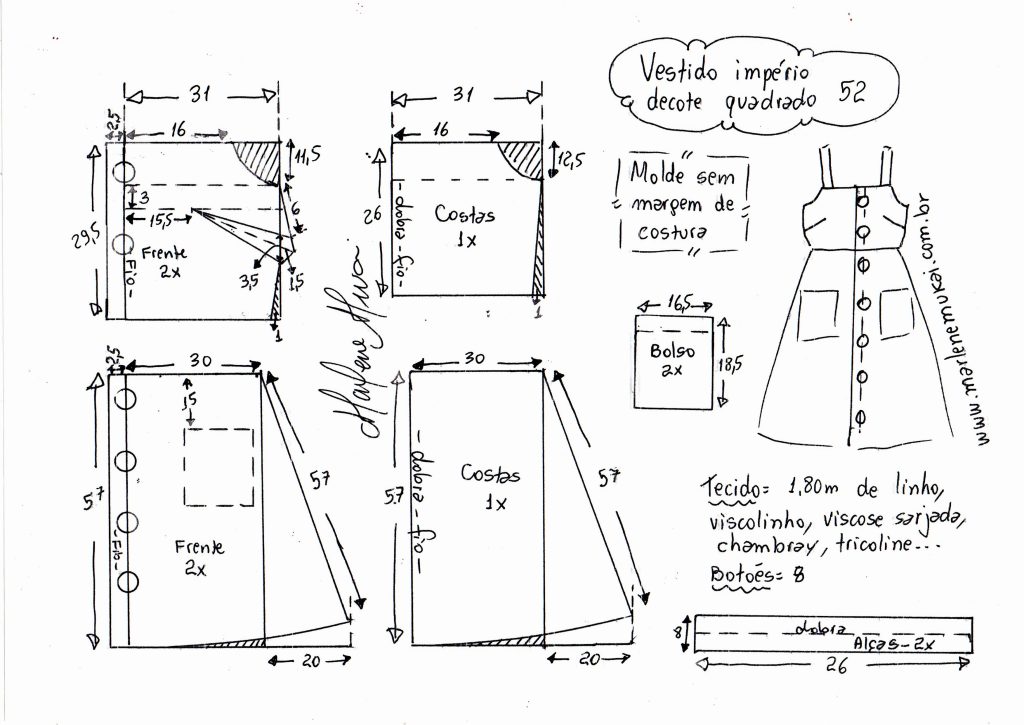 Vestido império
decote quadrado 52
31
2,5
16
11,5
29,5
3
15,5
6
Frente
2x
Fio
3,5
1,5
1
31
16
12,5
26
dobra - fio
Costas
1x
1
Molde sem
margem de
costura
www.marlenemukai.com.br
16,5
Bolso
2x
18,5
2,5
30
15
57
57
Frente
2x
Fio
20
30
57
57
dobra - fio
Costas
1x
20
Tecido = 1,80m de linho,
viscolinho, viscose sarjada,
chambray, tricoline...
Botões = 8
8
dobra
Alças - 2x
26